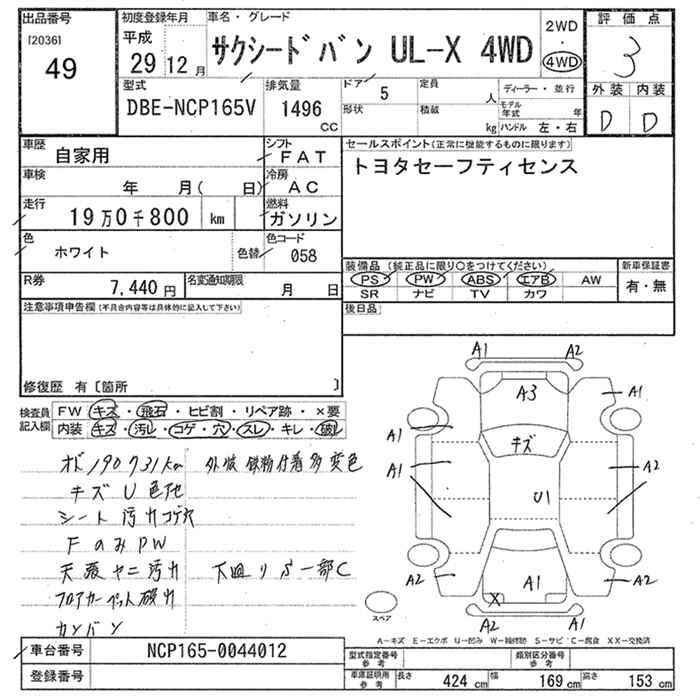 出品番号
[2036]
49
初度登録年月
平成
29 12 月
車名・グレード
サクシードバン UL-X 4WD
2WD
・
4WD
評価点
3
外装 内装
D D
型式
DBE-NCP165V
排気量
1496
cc
ドア 5
形状
定員 人
積載 kg
ディーラー・並行
モデル年式 年
ハンドル 左・右
車歴
自家用
シフト
FAT
車検
年 月( 日)
冷房
AC
走行
19万0千800 km
燃料
ガソリン
色
ホワイト
色替
色コード
058
R券
7,440 円
名変通知期限
月 日
セールスポイント(正常に機能するものに限ります)
トヨタセーフティセンス
装備品 (純正品に限り○をつけてください)
PS PW ABS エアB AW
SR ナビ TV カワ
新車保証書
有・無
注意事項申告欄(不具合内容等は具体的に記入して下さい)
後日品
修復歴 有〔箇所 〕
検査員
記入欄
FW キズ・飛石・ヒビ割・リペア跡・×要
内装 キズ・汚レ・コゲ・穴・スレ・キレ・破レ
キズ U 色ヤセ
シート 汚れ コゲ穴
FのみPW
天張ヤニ汚れ 下廻りS一部C
フロアカーペット破れ
カンバン
A1 A2
A3
A1
A1
キズ
A1
A2
U1
A2
A1
A2
X
A2 A1
スペア
A-キズ E-エクボ U-凹み W-補修跡 S-サビ C-腐食 XX-交換済
車台番号
NCP165-0044012
登録番号
型式指定番号
参考
類別区分番号
参考
車庫証明用
参考
長さ 424 cm 幅 169 cm 高さ 153 cm